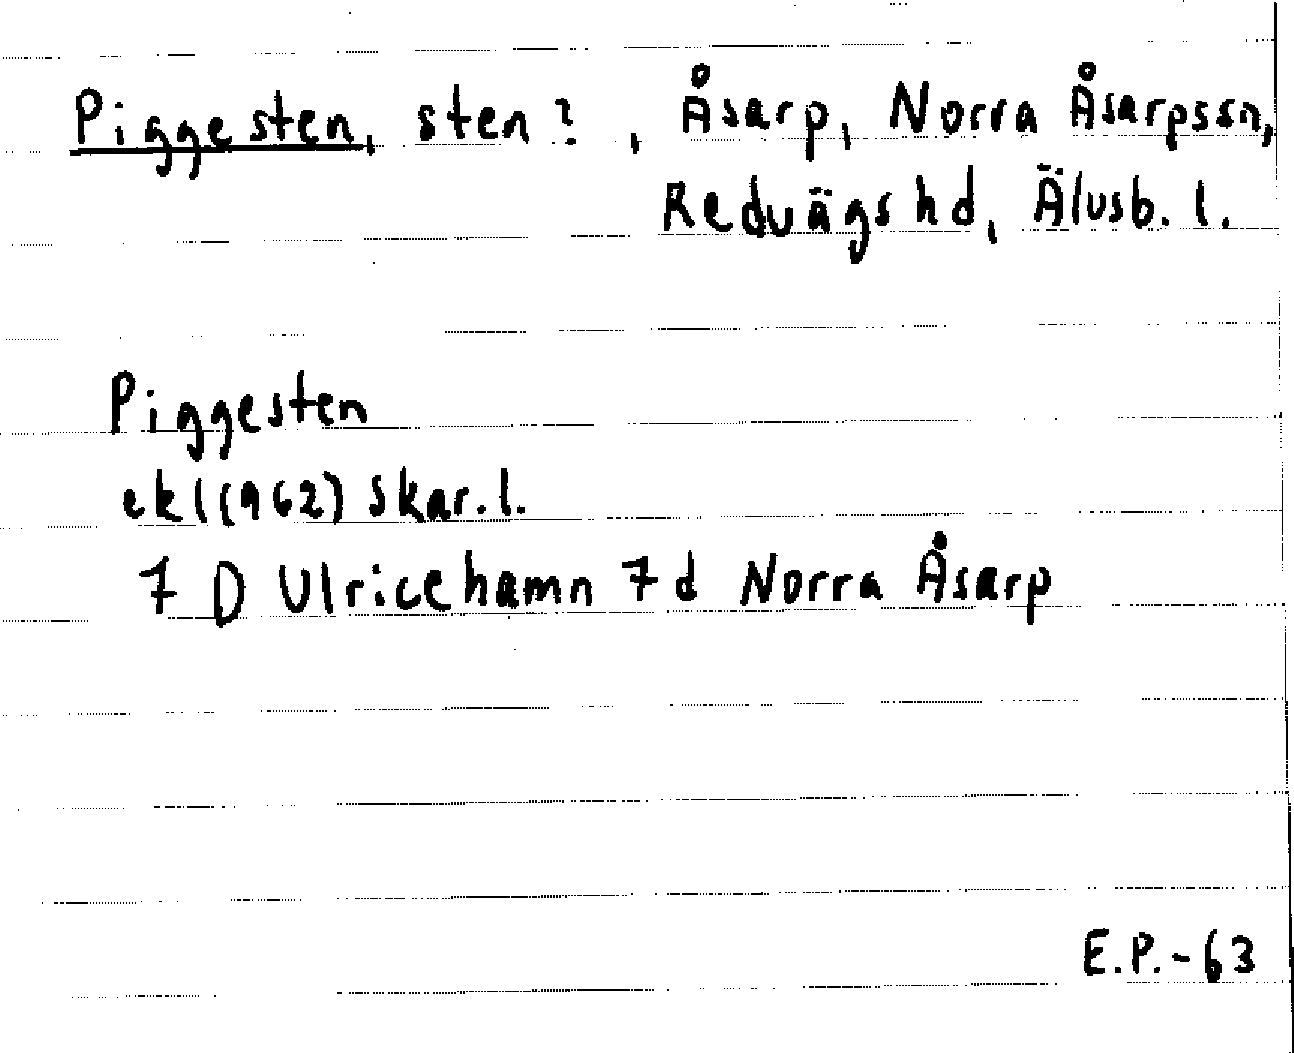 Piggesten, sten?, Åsarp, Norra Åsarpssn,
Redvägs hd, Älvsb. l.
Piggesten
ekl(1962) Skar.l.
7 D Ulricehamn 7 d Norra Åsarp
E.P.-63